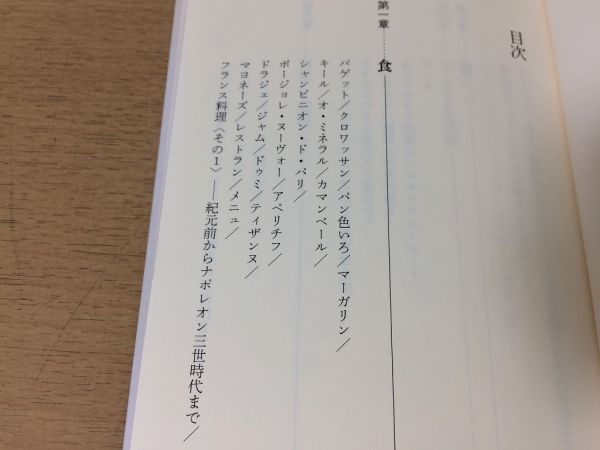 目次
第一章……食
バゲット／クロワッサン／パン色いろ／マーガリン／
キール／オ・ミネラル／カマンベール／
シャンピニオン・ド・パリ／
ボージョレ・ヌーヴォー／アペリチフ／
ドラジェ／ジャム／ドゥミ／ティザンヌ／
マヨネーズ／レストラン／メニュ／
フランス料理〈その1〉――紀元前からナポレオン三世時代まで／